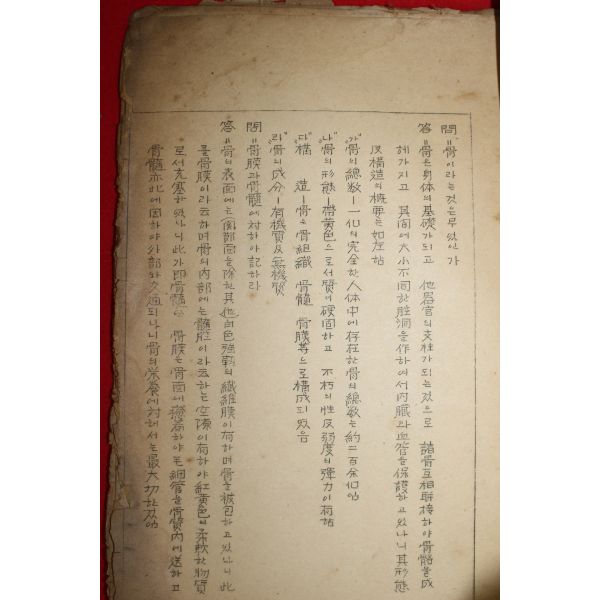 問 骨이라는것은무엇인가
答 骨은身体의基礎가되고 他器官의支柱가되는것으로 諸骨互相聯接하야骨骼을成
헤가지고 其間에大小不同한腔洞을作하여서内臟과血管을保護하고있나니其形態
及構造의概要는如左함
가 骨의總数―一個의完全한人体中에存在한骨의總数는約二百余個임
나 骨의形態―帶黄色으로서質이硬固하고 不朽의性及弱度의弾力이有함
다 構 造―骨은骨組織 骨髓 骨膜等으로構成되었음
라 骨의成分―有機質及無機質
問 骨膜과骨髓에対하야記하라
答 骨의表面에는関節面을除한其他白色強靭의纖維膜이有하며骨을被包하고있나니此
를骨膜이라云하며骨의内部에는髓腔이라云하는空隙이有하야紅黄色의柔軟한物質
로서充塞하였나니此가即骨髓임 骨膜은骨面에密着하야毛細管을骨質内에送하고
骨髓亦此에因하야外部와交通되나니骨의栄養에対해서는最大切한것임